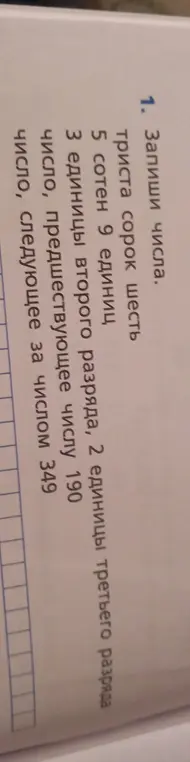 1. Запиши числа.
триста сорок шесть
5 сотен 9 единиц
3 единицы второго разряда, 2 единицы третьего разряда
число, предшествующее числу 190
число, следующее за числом 349